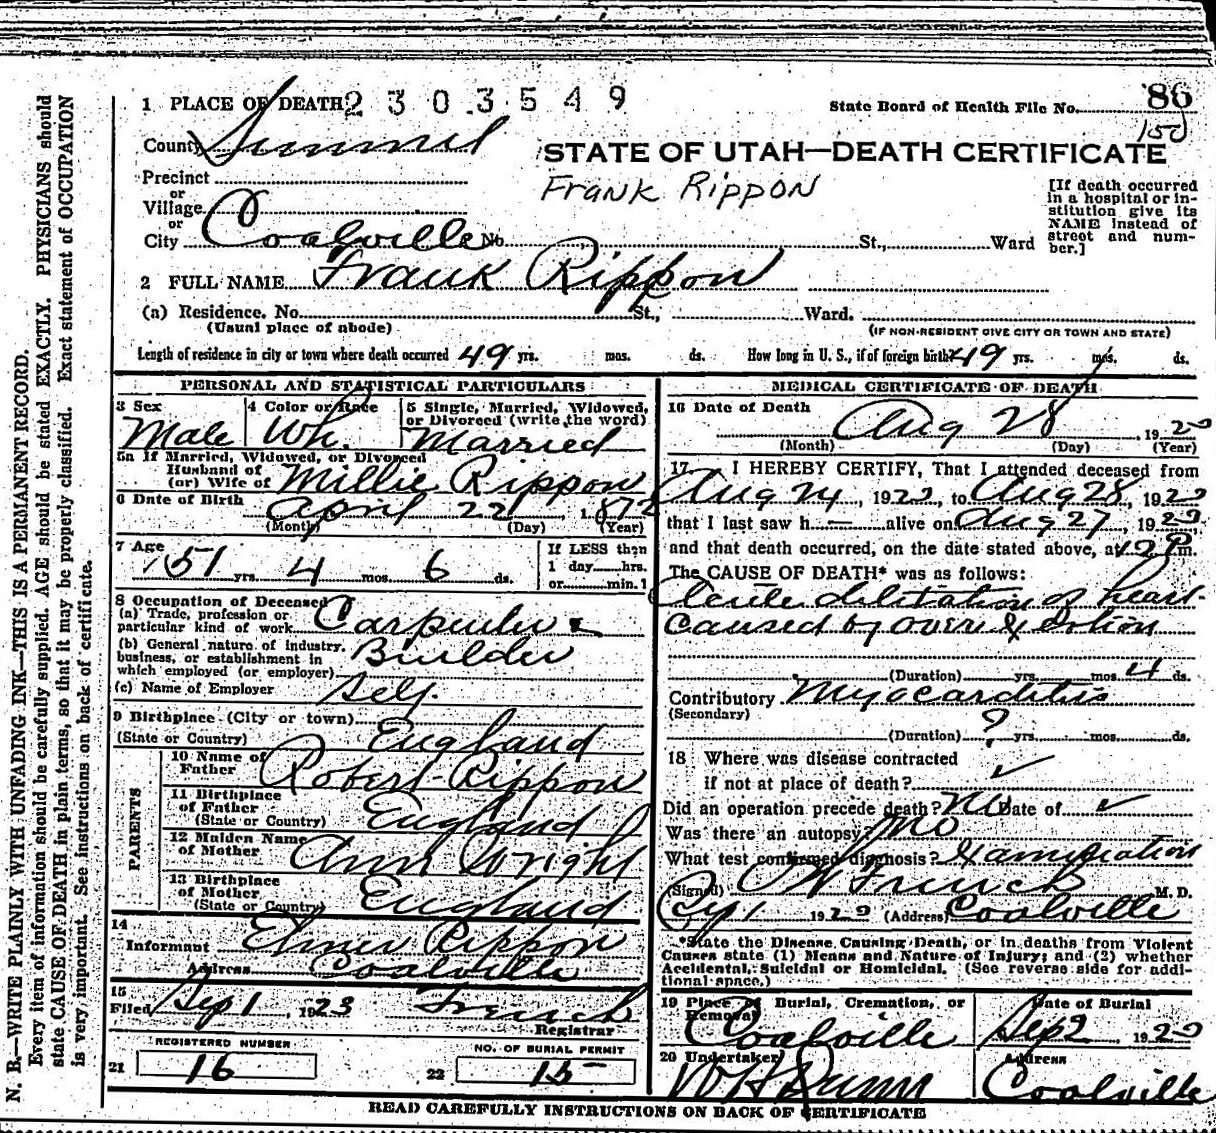 1 PLACE OF DEATH 2 3 0 3 5 4 9
State Board of Health File No. 86
150
County Summit
STATE OF UTAH—DEATH CERTIFICATE
Frank Rippon
Precinct
or
Village
or
City Coalville No. St., Ward
[If death occurred
in a hospital or in-
stitution give its
NAME instead of
street and num-
ber.]
2 FULL NAME Frank Rippon
(a) Residence. No. St., Ward.
(Usual place of abode) (IF NON-RESIDENT GIVE CITY OR TOWN AND STATE)
Length of residence in city or town where death occurred 49 yrs. mos. ds. How long in U. S., if of foreign birth? 49 yrs. mos. ds.
PERSONAL AND STATISTICAL PARTICULARS
3 Sex 4 Color or Race 5 Single, Married, Widowed,
or Divorced (write the word)
Male Wh. Married
5a If Married, Widowed, or Divorced
Husband of
(or) Wife of Millie Rippon
6 Date of Birth April 22 1872
(Month) (Day) (Year)
7 Age 51 yrs. 4 mos. 6 ds.
If LESS than
1 day hrs.
or min.1
8 Occupation of Deceased
(a) Trade, profession or
particular kind of work Carpenter &
(b) General nature of industry,
business, or establishment in
which employed (or employer) Builder
(c) Name of Employer Self.
9 Birthplace (City or town)
(State or Country) England
PARENTS
10 Name of
Father Robert Rippon
11 Birthplace
of Father
(State or Country) England
12 Maiden Name
of Mother Ann Wright
13 Birthplace
of Mother
(State or Country) England
14
Informant Elmer Rippon
Address Coalville
15
Filed Sep 1, 1923 French
Registrar
REGISTERED NUMBER NO. OF BURIAL PERMIT
21 16 22 15
MEDICAL CERTIFICATE OF DEATH
16 Date of Death
Aug 28, 1923
(Month) (Day) (Year)
17 I HEREBY CERTIFY, That I attended deceased from
Aug 24, 1923, to Aug 28, 1923
that I last saw h — alive on Aug 27, 1923,
and that death occurred, on the date stated above, at 12 P m.
The CAUSE OF DEATH* was as follows:
Acute dilitation of heart
caused by over exertion
(Duration) yrs. mos. 4 ds.
Contributory Myocarditis
(Secondary)
(Duration) ? yrs. mos. ds.
18 Where was disease contracted
if not at place of death? ✓
Did an operation precede death? No Date of ✓
Was there an autopsy? No
What test confirmed diagnosis? Examination
(Signed) French M. D.
Sep 1 1923 (Address) Coalville
*State the Disease Causing Death, or in deaths from Violent
Causes state (1) Means and Nature of Injury; and (2) whether
Accidental, Suicidal or Homicidal. (See reverse side for addi-
tional space.)
19 Place of Burial, Cremation, or
Removal Date of Burial
Coalville Sep 2, 1923
20 Undertaker Address
Coalville
READ CAREFULLY INSTRUCTIONS ON BACK OF CERTIFICATE
N. B.—WRITE PLAINLY WITH UNFADING INK—THIS IS A PERMANENT RECORD.
Every item of information should be carefully supplied. AGE should be stated EXACTLY. PHYSICIANS should
state CAUSE OF DEATH in plain terms, so that it may be properly classified. Exact statement of OCCUPATION
is very important. See instructions on back of certificate.